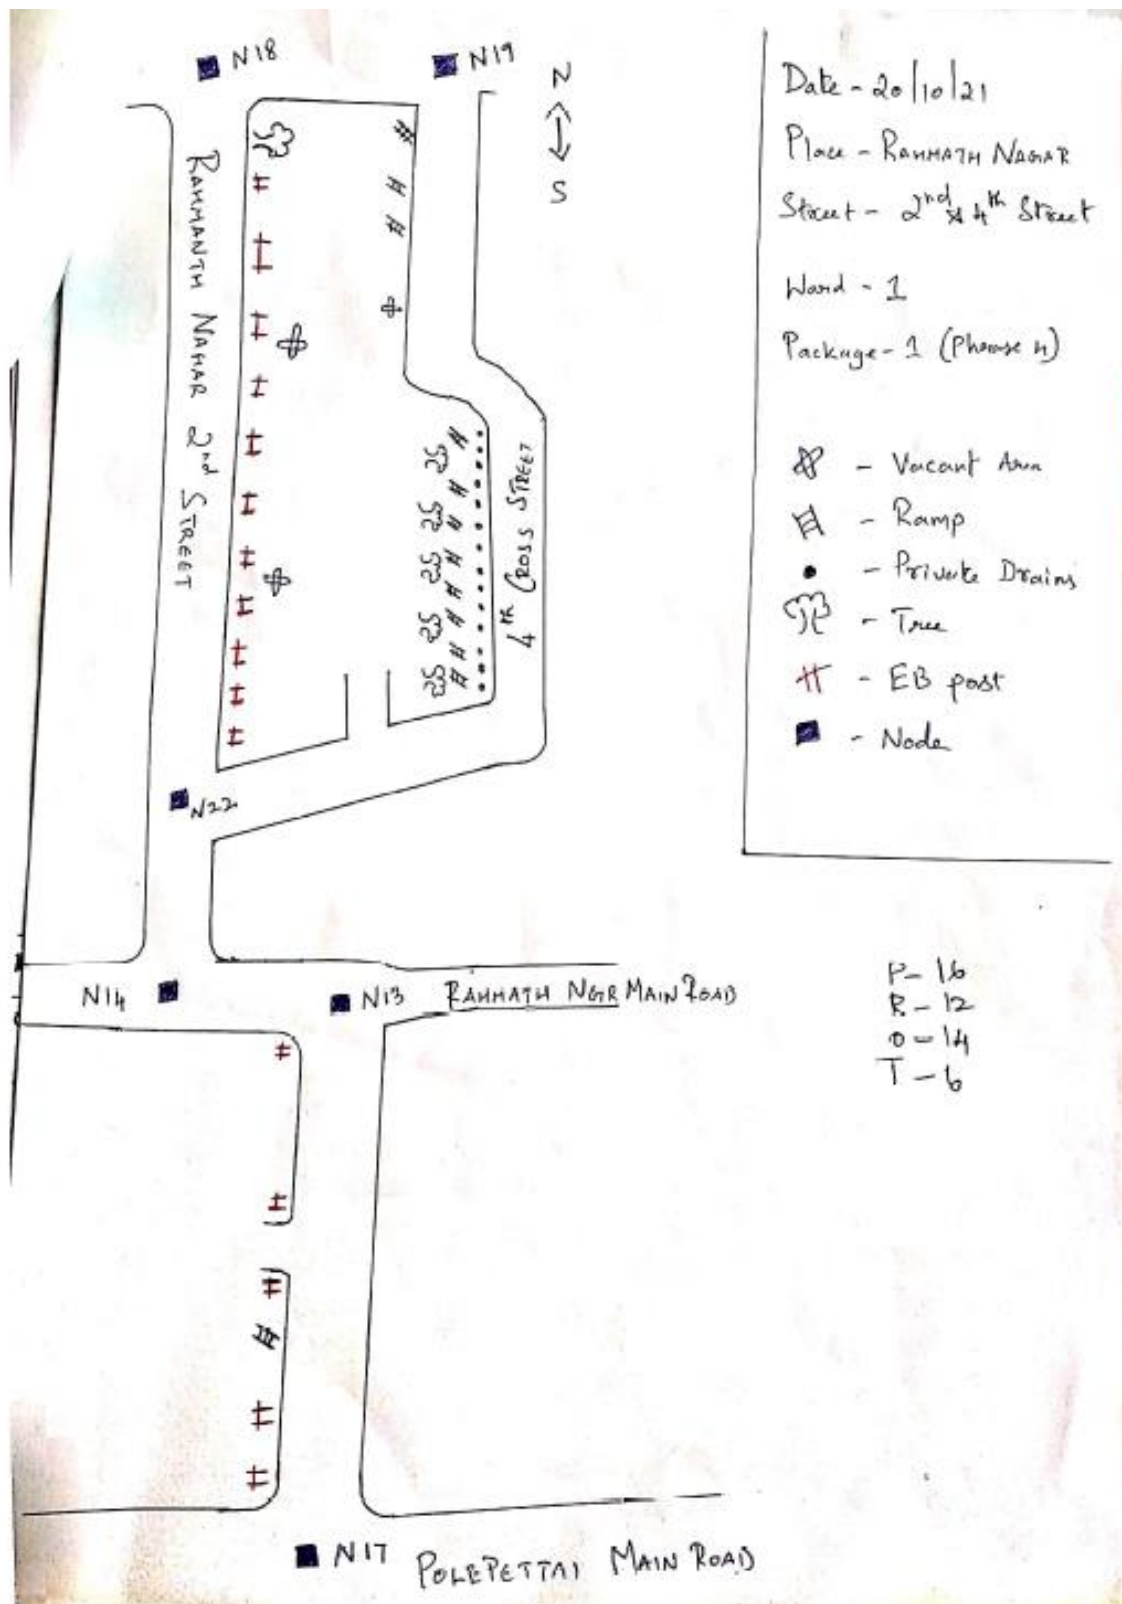 N18
N19
N
S
RAHMANTH NAHAR 2nd STREET
4th CROSS STREET
N22
N14
N13
RAHMATH NGR MAIN ROAD
N17
POLEPETTAI MAIN ROAD
Date - 20/10/21
Place - RAHMATH NAGAR
Street - 2nd & 4th Street
Ward - 1
Package - 1 (Phrase 4)
- Vacant Area
- Ramp
- Private Drains
- Tree
- EB post
- Node
P - 16
R - 12
O - 14
T - 6